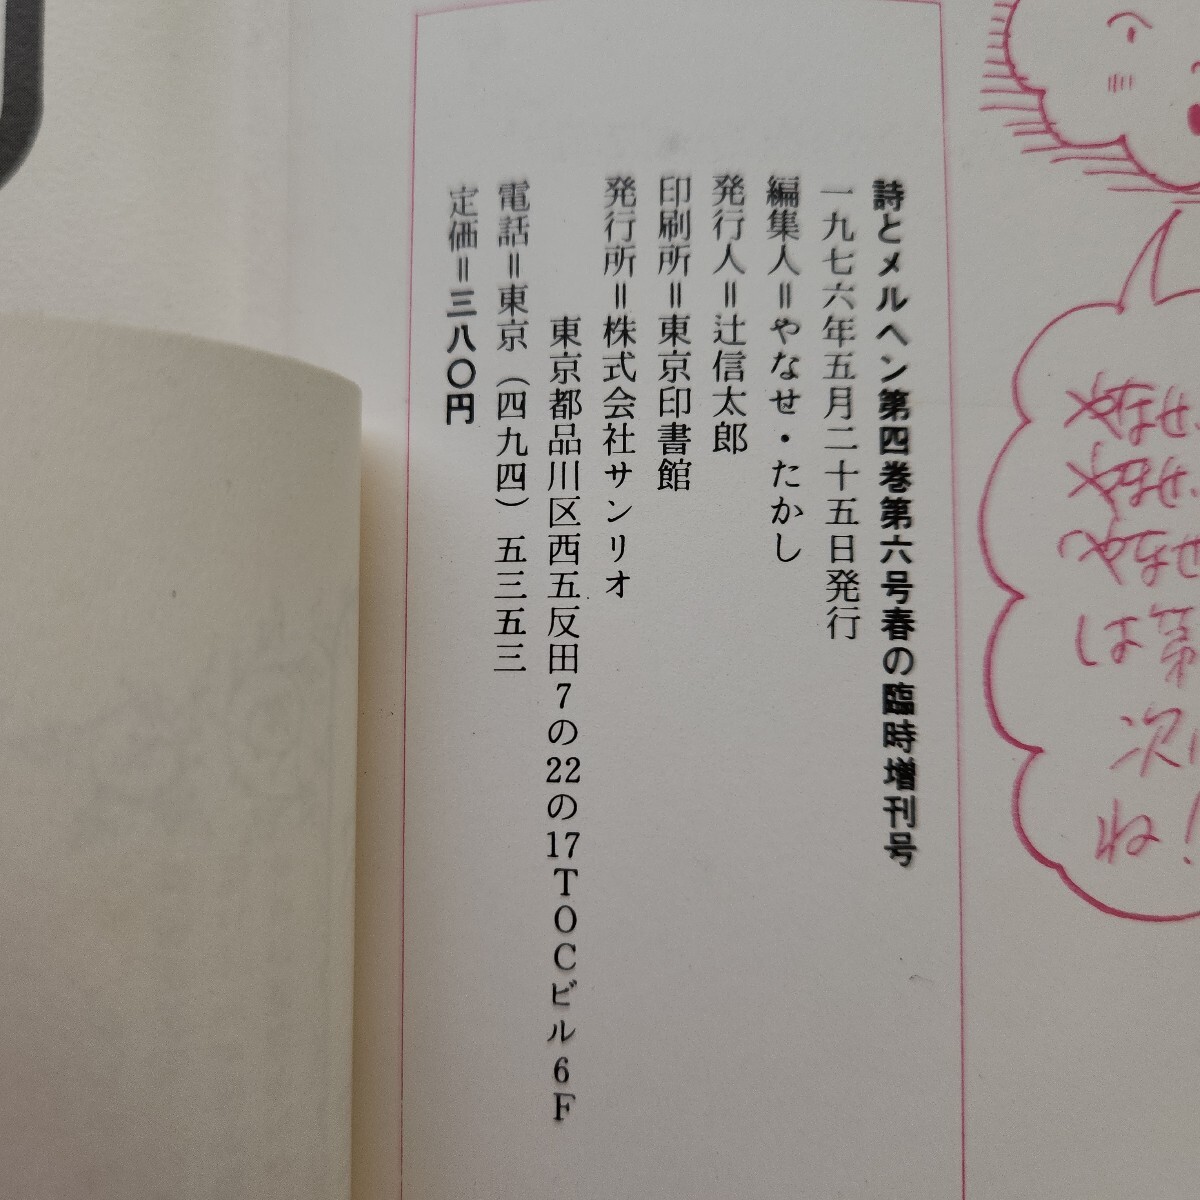 詩とメルヘン第四巻第六号春の臨時増刊号
一九七六年五月二十五日発行
編集人＝やなせ・たかし
発行人＝辻信太郎
印刷所＝東京印書館
発行所＝株式会社サンリオ
東京都品川区西五反田7の22の17TOCビル6F
電話＝東京（四九四）五三五三
定価＝三八〇円
は第
ね！